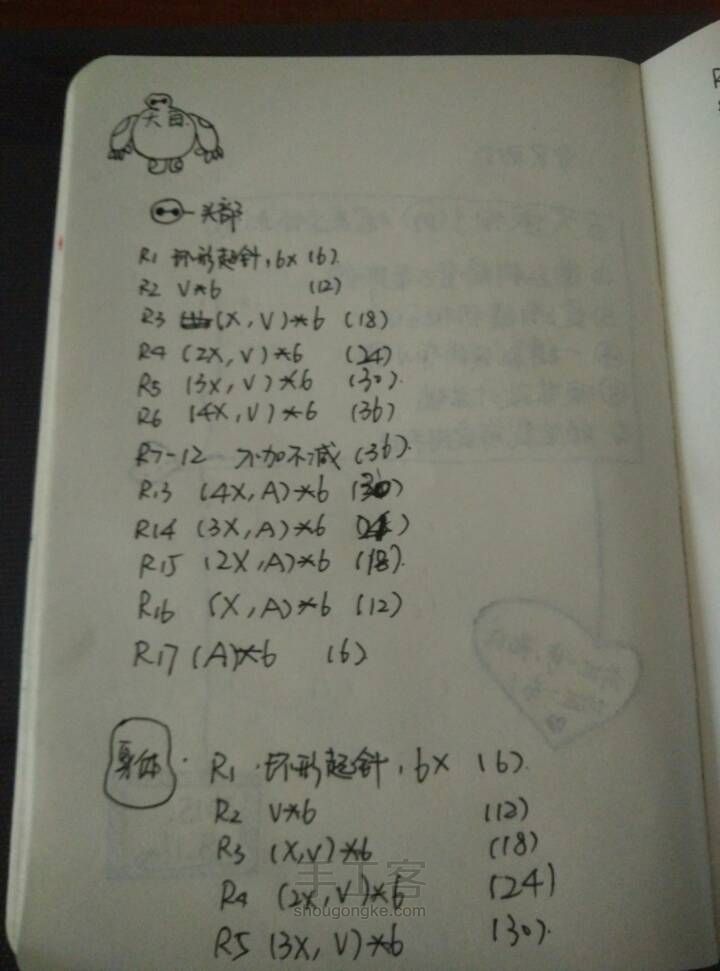 大白
头部
R1 环形起针,6X (6)
R2 V*6 (12)
R3 (X,V)*6 (18)
R4 (2X,V)*6 (24)
R5 (3X,V)*6 (30)
R6 (4X,V)*6 (36)
R7-12 不加不减 (36)
R13 (4X,A)*6 (30)
R14 (3X,A)*6 (24)
R15 (2X,A)*6 (18)
R16 (X,A)*6 (12)
R17 (A)*6 (6)
身体
R1 环形起针,6X (6)
R2 V*6 (12)
R3 (X,V)*6 (18)
R4 (2X,V)*6 (24)
手工客
shougongke.com
R5 (3X,V)*6 (30)
R